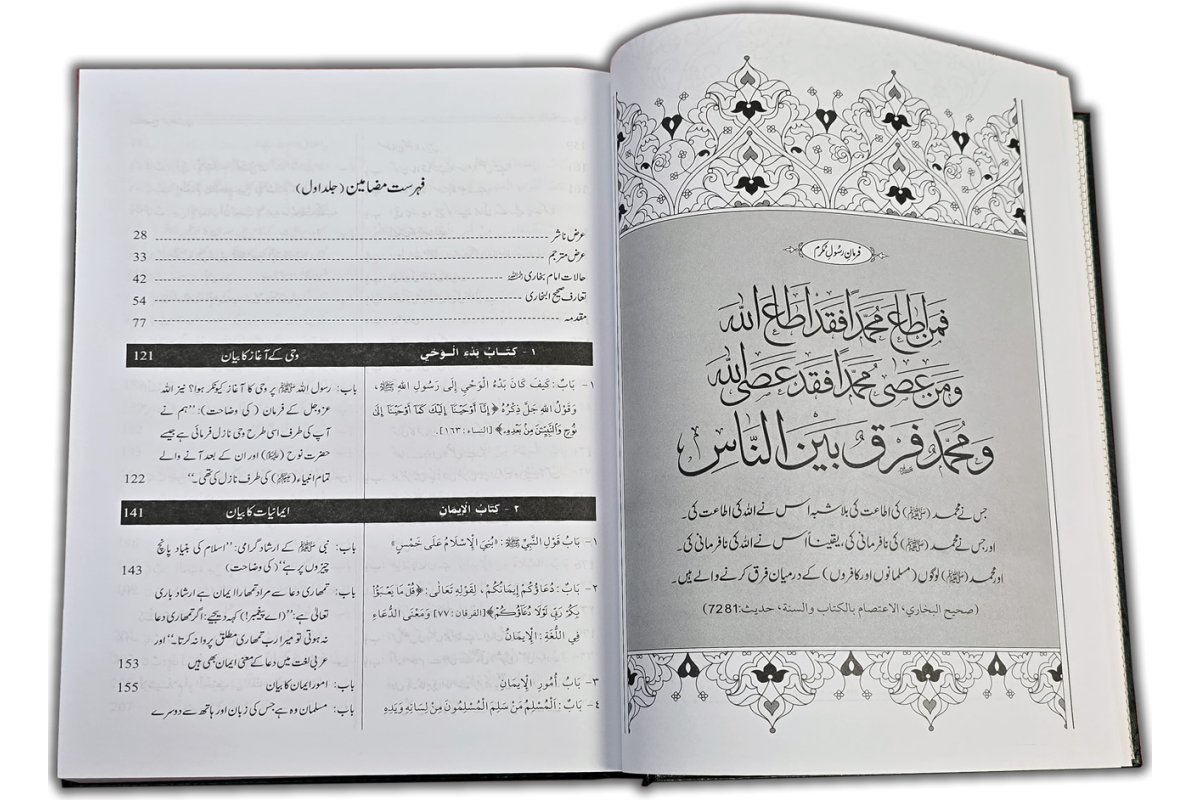 فرمانِ رسولِ مکرم
فَمَن اَطاعَ مُحَمَّداً فَقَد اَطاعَ الله
وَمَن عَصٰی مُحَمَّداً فَقَد عَصَی الله
وَ مُحَمَّد فَرق بَینَ النَّاسِ
جس نے محمد (ﷺ) کی اطاعت کی بلاشبہ اس نے اللہ کی اطاعت کی۔
اور جس نے محمد (ﷺ) کی نافرمانی کی، یقیناً اس نے اللہ کی نافرمانی کی۔
اور محمد (ﷺ) لوگوں (مسلمانوں اور کافروں) کے درمیان فرق کرنے والے ہیں۔
(صحيح البخاري، الاعتصام بالكتاب والسنة، حديث:7281)
فہرست مضامین (جلد اول)
عرض ناشر 28
عرض مترجم 33
حالات امام بخاری رحمہ اللہ 42
تعارف صحیح البخاری 54
مقدمہ 77
١- كتـــابُ بَدْءِ الْـوَحْيِ وحی کے آغاز کا بیان 121
١- بَابٌ: كَيْفَ كَانَ بَدْءُ الْوَحْيِ إِلَى رَسُولِ اللهِ ﷺ، باب: رسول اللہ ﷺ پر وحی کا آغاز کیونکر ہوا؟ نیز اللہ
وَقَوْلِ اللهِ جَلَّ ذِكْرُهُ ﴿إِنَّآ أَوْحَيْنَآ إِلَيْكَ كَمَآ أَوْحَيْنَآ إِلَىٰ عزوجل کے فرمان (کی وضاحت): ’’ہم نے
نُوحٍ وَٱلنَّبِيِّـۧنَ مِنۢ بَعْدِهِۦ﴾ [النساء: ١٦٣]. آپ کی طرف اسی طرح وحی نازل فرمائی ہے جیسے
حضرت نوح (علیہ السلام) اور ان کے بعد آنے والے
تمام انبیاء (علیہم السلام) کی طرف نازل کی تھی۔‘‘ 122
٢- كتابُ الْإيمانِ ایمانیات کا بیان 141
١- بَابُ قَوْلِ النَّبِيِّ ﷺ: «بُنِيَ الْإِسْلَامُ عَلَى خَمْسٍ» باب: نبی ﷺ کے ارشاد گرامی: ’’اسلام کی بنیاد پانچ
چیزوں پر ہے‘‘ (کی وضاحت) 143
٢- بَابٌ: دُعَاؤُكُمْ إِيمَانُكُمْ، لِقَوْلِهِ تَعَالَى: ﴿قُلْ مَا يَعْبَؤُا باب: تمھاری دعا سے مراد تمھارا ایمان ہے ارشاد باری
بِكُمْ رَبِّي لَوْلَا دُعَاؤُكُمْ﴾ [الفرقان: ٧٧] وَمَعْنَى الدُّعَاءِ تعالیٰ ہے: ’’(اے پیغمبر!) کہہ دیجیے: اگر تمھاری دعا
فِي اللُّغَةِ: الْإِيمَانُ نہ ہوتی تو میرا رب تمھاری مطلق پروا نہ کرتا۔‘‘ اور
عربی لغت میں دعا کے معنی ایمان بھی ہیں 153
٣- بَابُ أُمُورِ الْإِيمَانِ باب: امور ایمان کا بیان 155
٤- بَابٌ: اَلْمُسْلِمُ مَنْ سَلِمَ الْمُسْلِمُونَ مِنْ لِسَانِهِ وَيَدِهِ باب: مسلمان وہ ہے جس کی زبان اور ہاتھ سے دوسرے